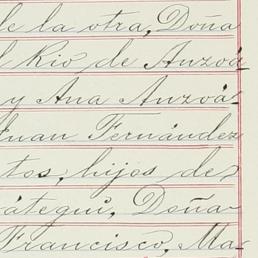 de la otra, Doña
l Rio de Anzoá
y Ana Anzoá-
Juan Fernández
tos, hijos de
átegui, Doña
Francisco, Ma-